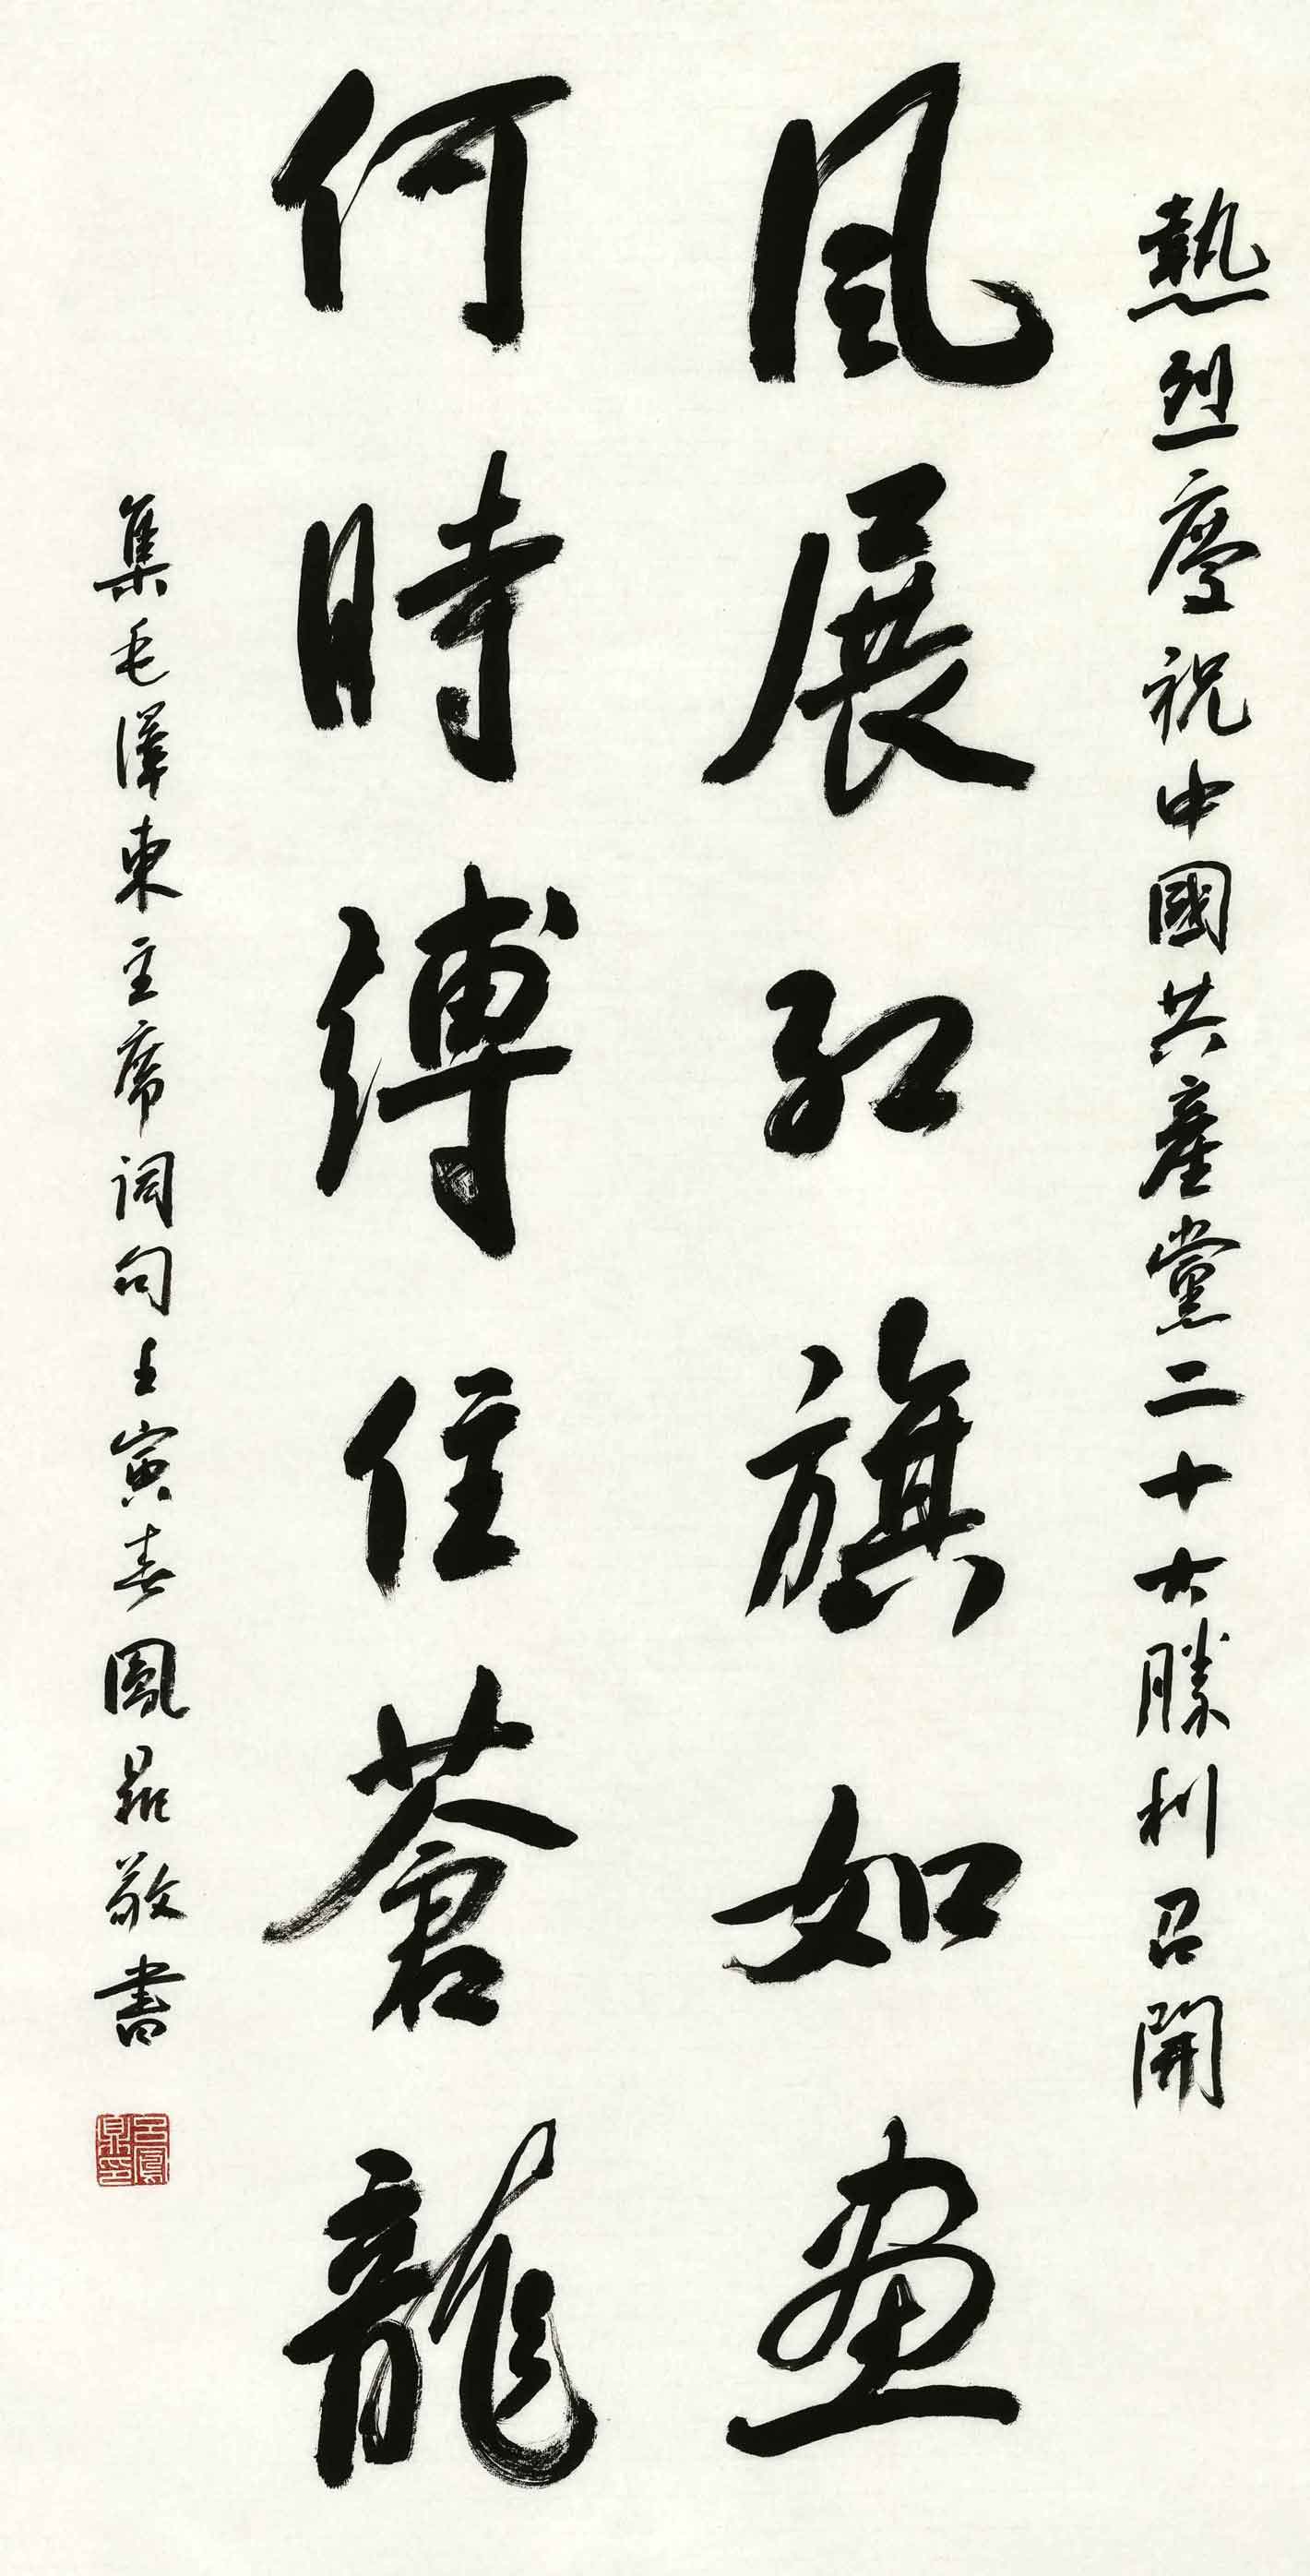 熱烈慶祝中國共產黨二十大勝利召開
风展紅旗如畫
何時縛住蒼龍
集毛澤東主席詞句壬寅春鳳鼎敬書
呂鳳鼎印